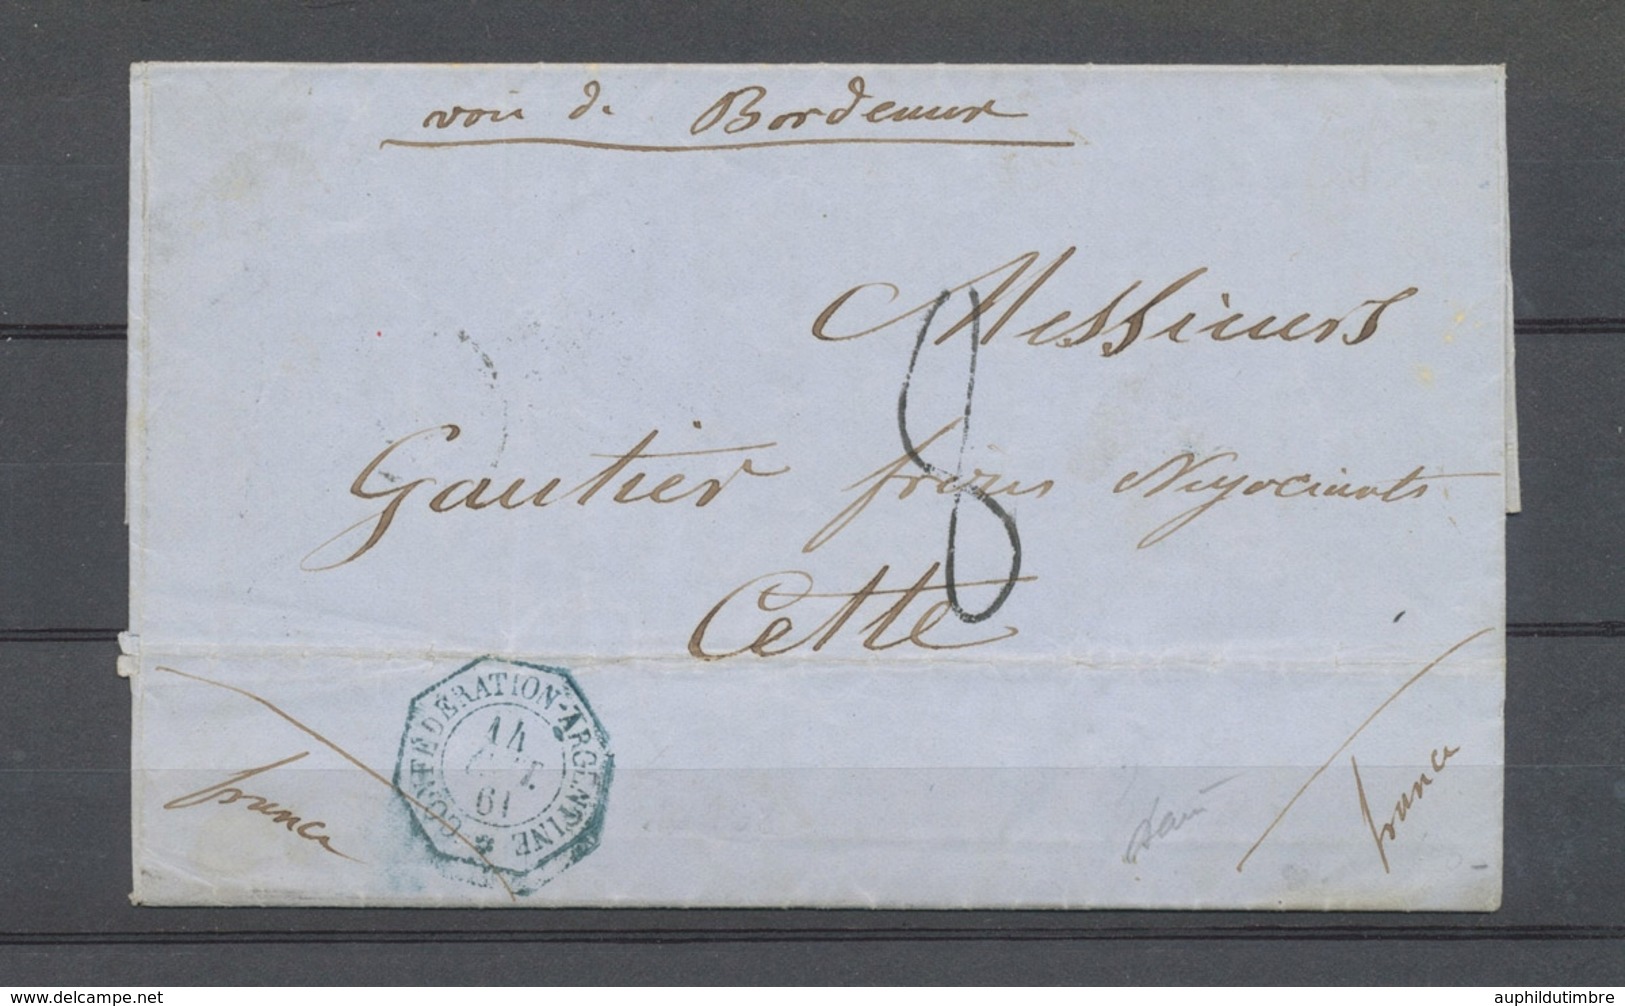 voie de Bordeaux
Messieurs
8
Gautier frères Négociants
Cette
CONFÉDÉRATION-ARGENTINE
14
61
france
france
auphildutimbre
auphildutimbre.com